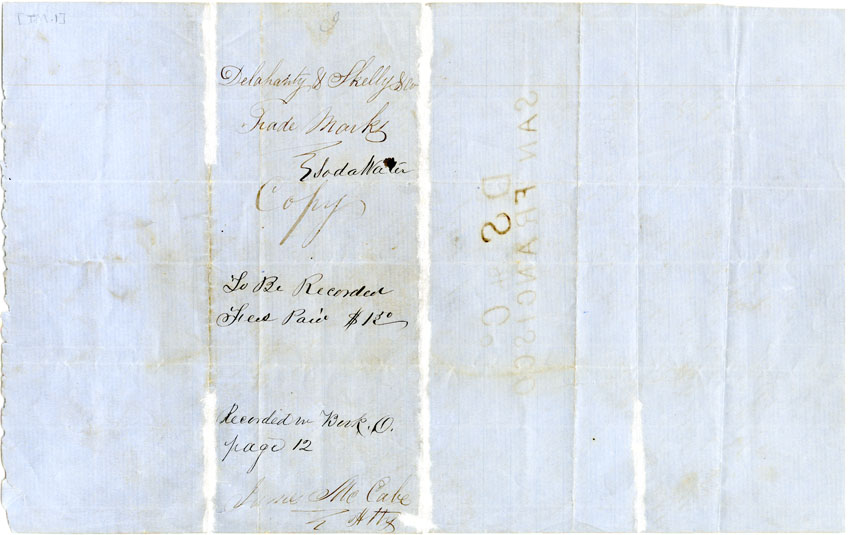 Delahanty & Skelly & Co
Trade Marks
Soda Water
Copy
To Be Recorded
Fees Paid $1 50
Recorded in Book. O.
page 12
James McCabe
Atty
D S & Co
SAN FRANCISCO